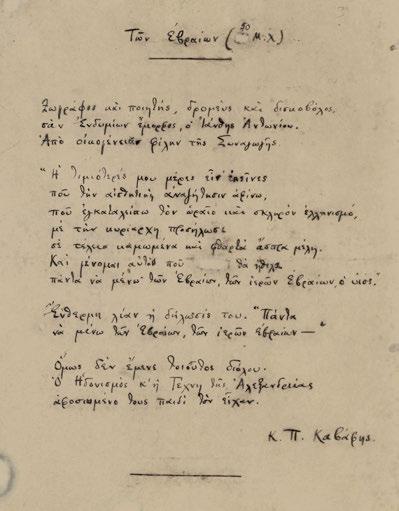 Τῶν Ἑβραίων (50 μ.Χ)
Ζωγράφος καὶ ποιητής, δρομεὺς καὶ δισκοβόλος,
σὰν Ἐνδυμίων ἔμορφος, ὁ Ἰάνθης Ἀντωνίου.
Ἀπὸ οἰκογένειαν φίλην τῆς Συναγωγῆς.
"Ἡ τιμιότερές μου μέρες εἶν' ἐκεῖνες
ποῦ τὴν αἰσθητικὴ ἀναζήτησιν ἀφίνω,
ποῦ ἐγκαταλείπω τὸν ὡραῖο καὶ σκληρὸν ἑλληνισμό,
μὲ τὴν κυρίαρχη προσήλωσι
σὲ τέλεια καμωμένα καὶ φθαρτὰ ἄσπρα μέλη.
Καὶ γένομαι αὐτὸς ποῦ θὰ ἤθελα
πάντα νὰ μένω· τῶν Ἑβραίων, τῶν ἱερῶν Ἑβραίων, ὁ υἱός."
Ἔνθερμη λίαν ἡ δήλωσίς του. "Πάντα
νὰ μένω τῶν Ἑβραίων, τῶν ἱερῶν Ἑβραίων —"
Ὅμως δὲν ἔμενε τοιοῦτος διόλου.
Ὁ Ἡδονισμὸς κ' ἡ Τέχνη τῆς Ἀλεξανδρείας
ἀφοσιωμένο τους παιδὶ τὸν εἶχαν.
Κ. Π. Καβάφης.